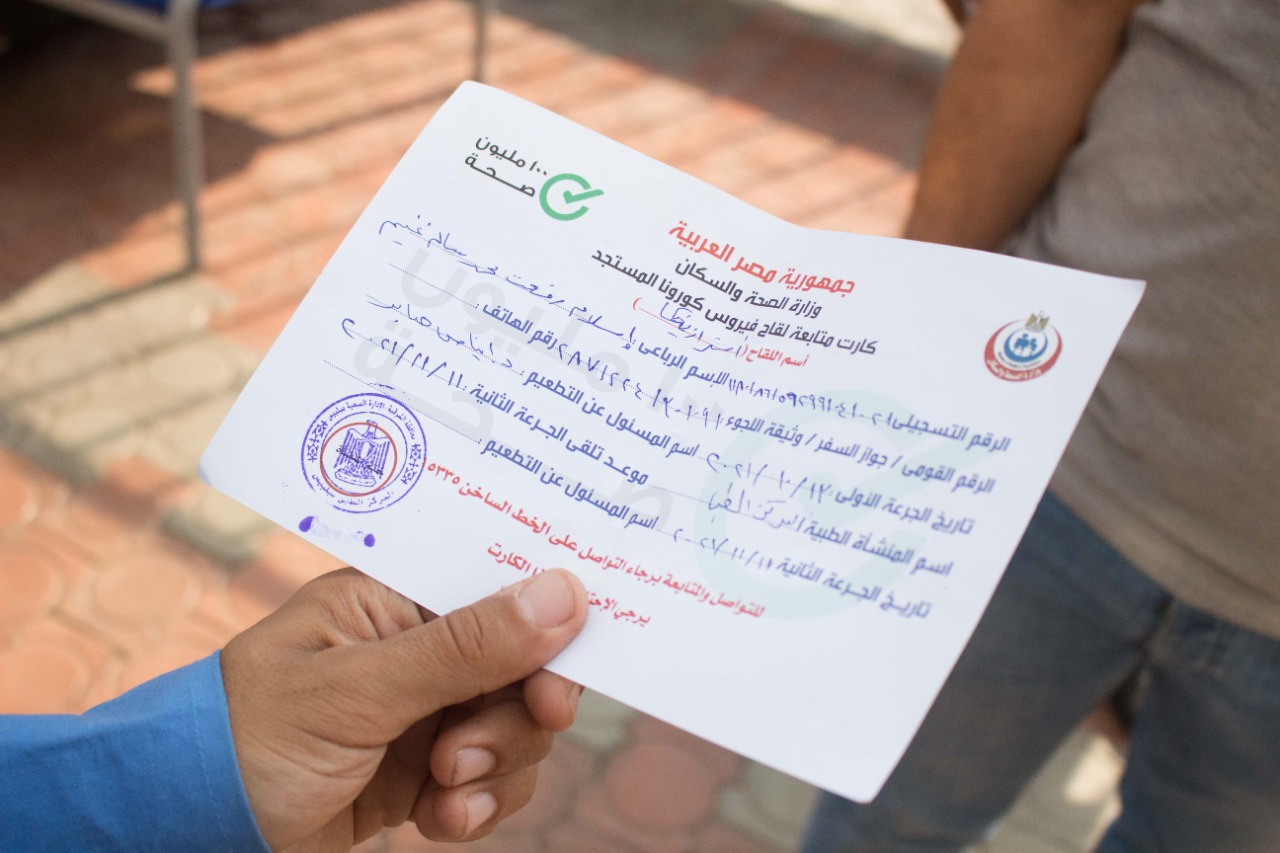 ١٠٠ مليون
صحة
جمهورية مصر العربية
وزارة الصحة والسكان
كارت متابعة لقاح فيروس كورونا المستجد
أسم اللقاح (استرازينكا)
الرقم التسجيلى الإسم الرباعى: إسلام رفعت محمد سالم غنيم
الرقم القومى / جواز السفر / وثيقة اللجوء رقم الهاتف:
تاريخ الجرعة الأولى: ٢٠٢١/١٠/١٢ اسم المسئول عن التطعيم:
اسم المنشأة الطبية المركز الطبى موعد تلقى الجرعة الثانية: ٢٠٢١/١١/١١
تاريخ الجرعة الثانية اسم المسئول عن التطعيم:
للتواصل والمتابعة برجاء التواصل على الخط الساخن ٥٣٣٥
يرجي الإحتفا ا الكارت
المركز الطبى ببلبيس
١٠٠ مليون
صحة